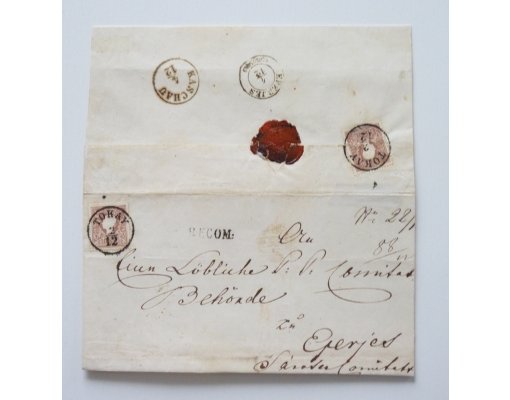 KASCHAU
13
EPERIES
TOKAY
12
TOKAY
7/12
RECOM.
An
Eine Löbliche k: k: Comitat
Behörde
zu
Eperjes
Sároser Comitats